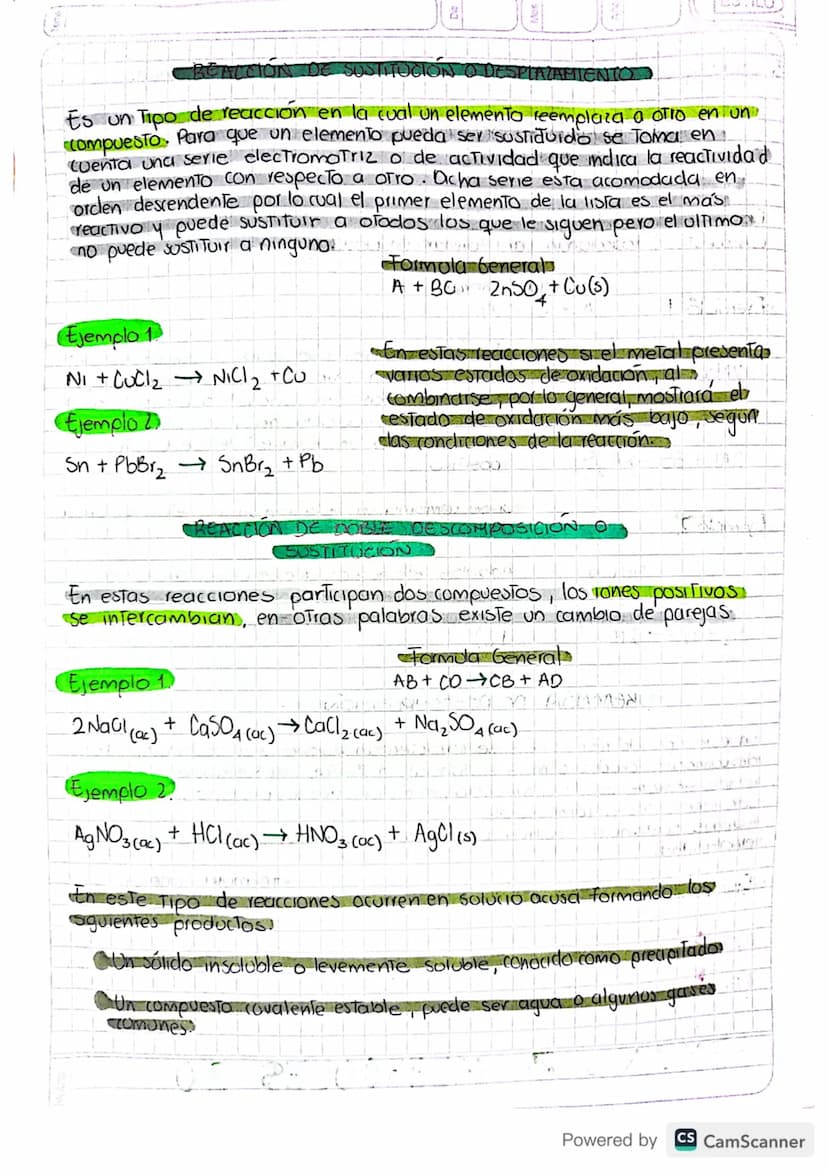 REACCIÓN DE SUSTITUCIÓN O DESPLAZAMIENTO
Es un Tipo de reacción en la cual un elemento reemplaza a otro en un
compuesto. Para que un elemento pueda ser sustiduido se Toma en
cuenta una serie electromotriz o de actividad que indica la reactividad
de un elemento con respecto a otro. Dcha serie esta acomodada en
orden descendente por lo cual el primer elemento de la lista es el más
reactivo y puede sustituir a otodos los que le siguen pero el ultimo
no puede sustituir a ninguno.
Formula General
A + BC ZnSO4 + Cu(s)
Ejemplo 1
Ni + CuCl2 → NiCl2 + Cu
Ejemplo 2
Sn + PbBr2 → SnBr2 + Pb
En estas reacciones si el metal presenta
varios estados de oxidación, al
combinarse, por lo general, mostrará el
estado de oxidación más bajo, según
las condiciones de la reacción.
REACCIÓN DE DOBLE DESCOMPOSICIÓN O
SUSTITUCIÓN
En estas reacciones participan dos compuestos, los iones positivos
se intercambian, en otras palabras existe un cambio de parejas.
Formula General
AB + CD → CB + AD
Ejemplo 1
2NaCl(ac) + CaSO4(ac) → CaCl2(ac) + Na2SO4(ac)
Ejemplo 2
AgNO3(ac) + HCl(ac) → HNO3(ac) + AgCl(s)
En este Tipo de reacciones ocurren en solucio acusa formando los
siguientes productos:
Un sólido insoluble o levemente soluble, conocido como precipitado
Un compuesto covalente estable, puede ser agua o algunos gases
comunes
Powered by CS CamScanner